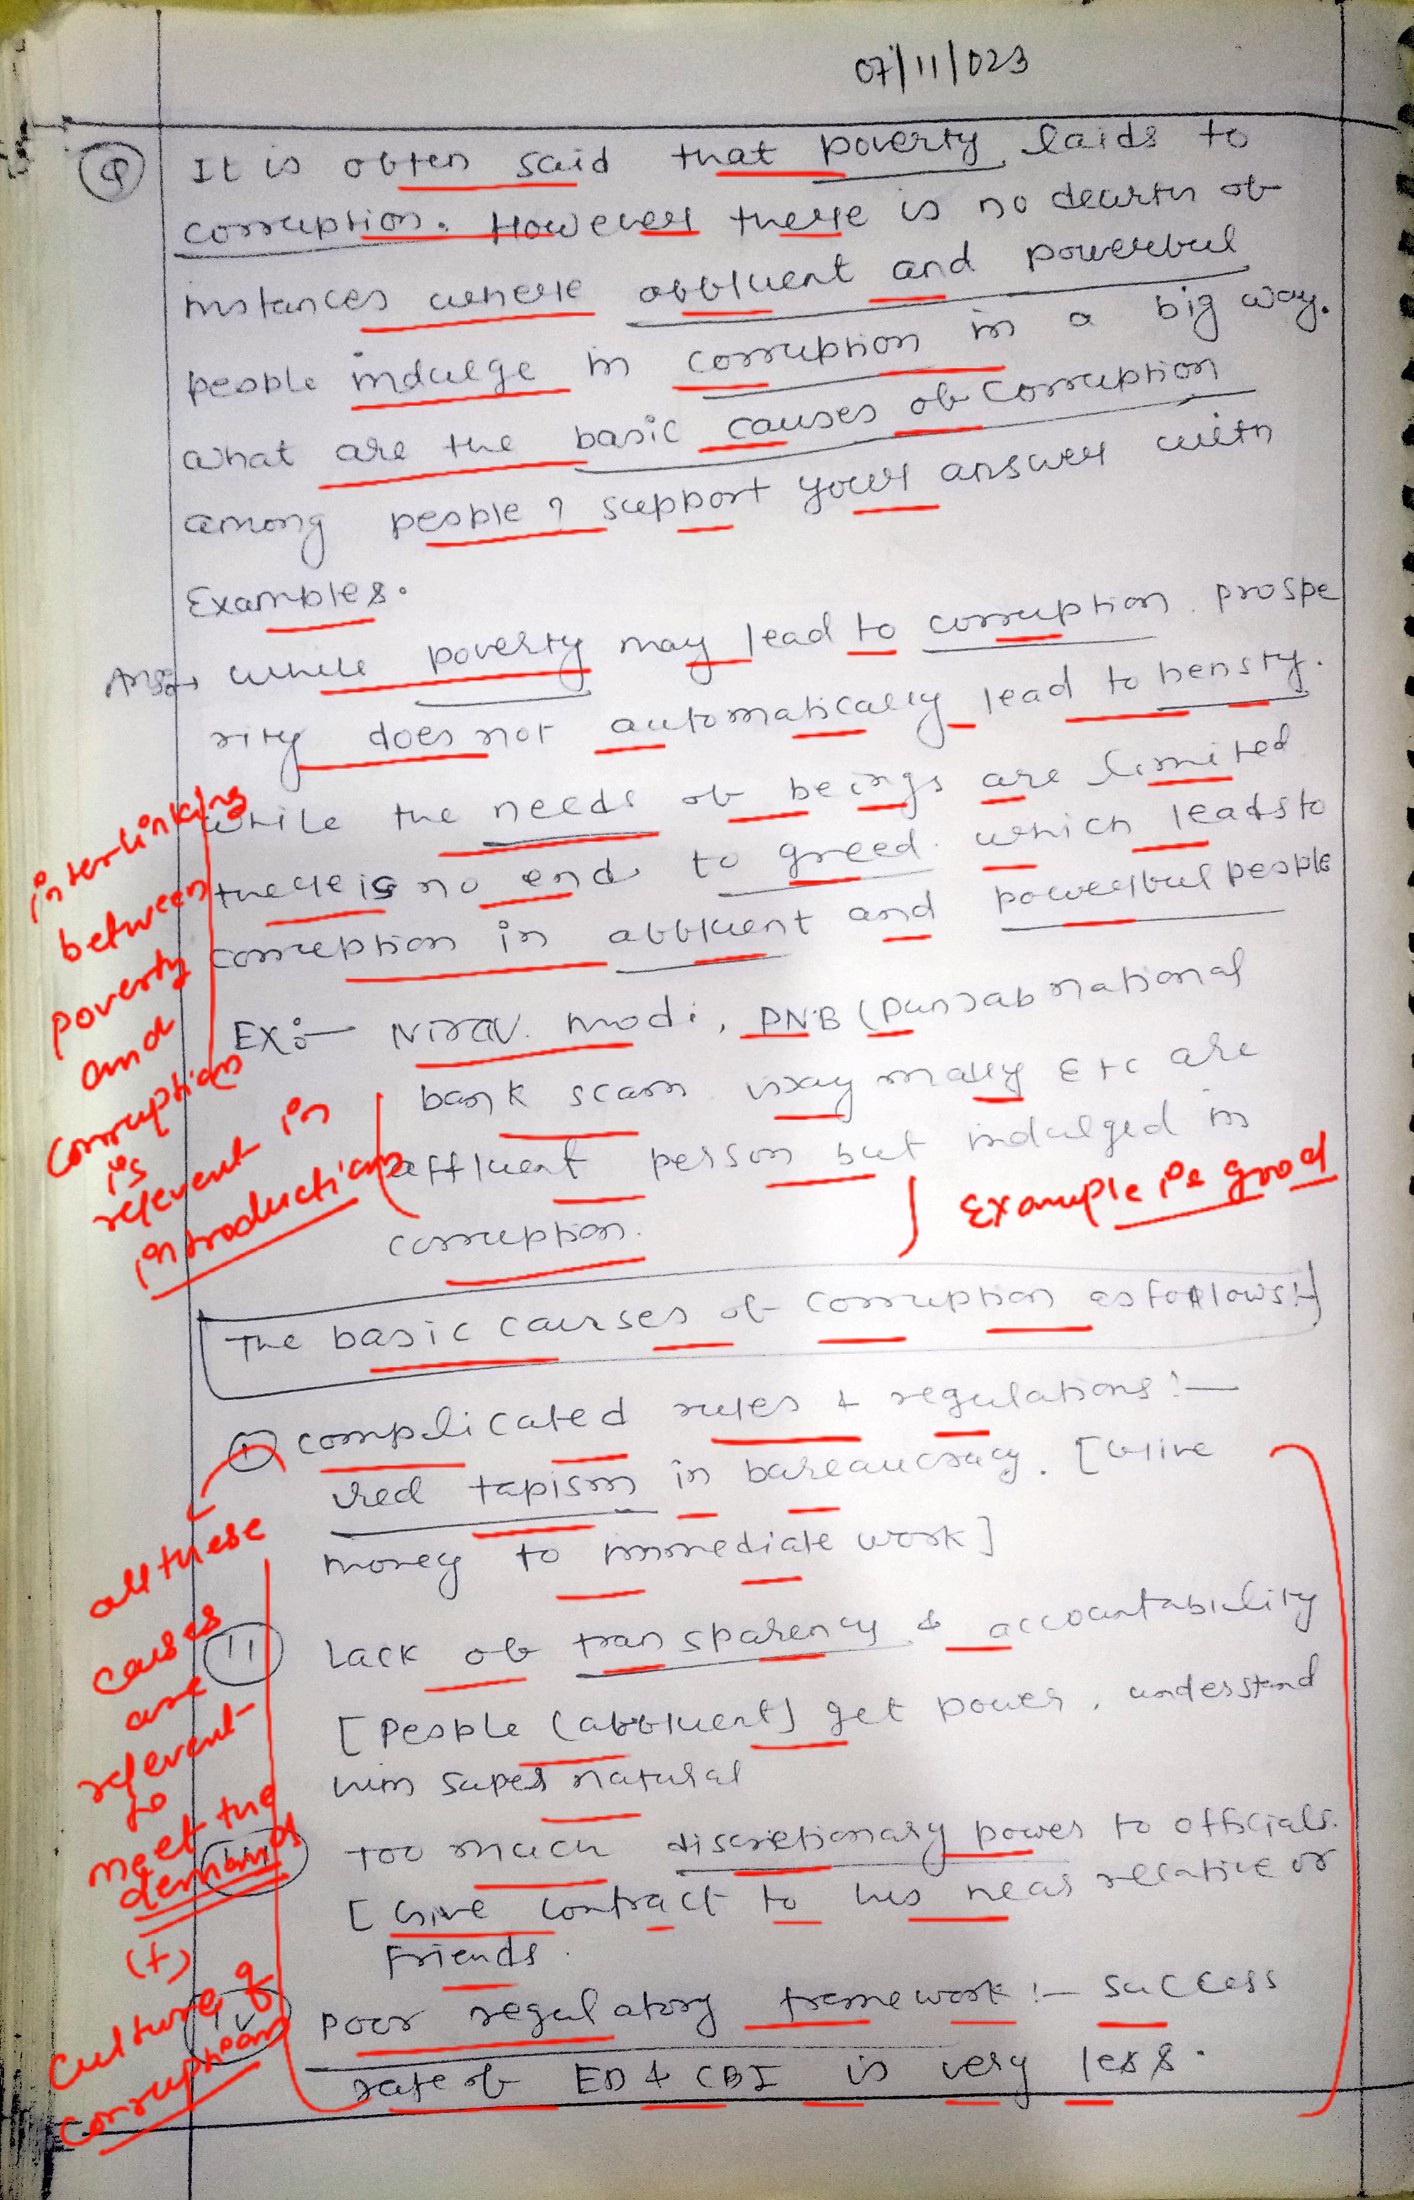 07/11/023
Q It is often said that poverty laids to
corruption. However there is no dearth of
instances where affluent and powerful
people indulge in corruption in a big way.
what are the basic causes of corruption
among people? support your answer with
Examples.
Ans:→ While poverty may lead to corruption. prospe
rity does not automatically lead to hensty.
while the needs of beings are limited
there is no end to greed. which leads to
corruption in affluent and powerful people
Ex:- Nirav. modi, PNB (Punjab national
bank scam vijay mally Etc are
affluent person but indulged in
corruption.
interlinking
between
poverty
and
corruption
is
relevent in
introduction
Example is good
The basic causes of corruption as follows:-
(i) complicated rules & regulations:-
red tapism in bareaucracy. [Give
money to immediate work]
(ii) Lack of transparency & accountability
[People (affluent) get power, understand
him super natural
(iii) Too much discretionary power to officials.
[Give contract to his near relative or
Friends.
(iv) Poor regulatory framework:- success
rate of ED & CBI is very less.
all these
causes
are
relevent
to
meet the
demands
(+)
Culture of
corruption